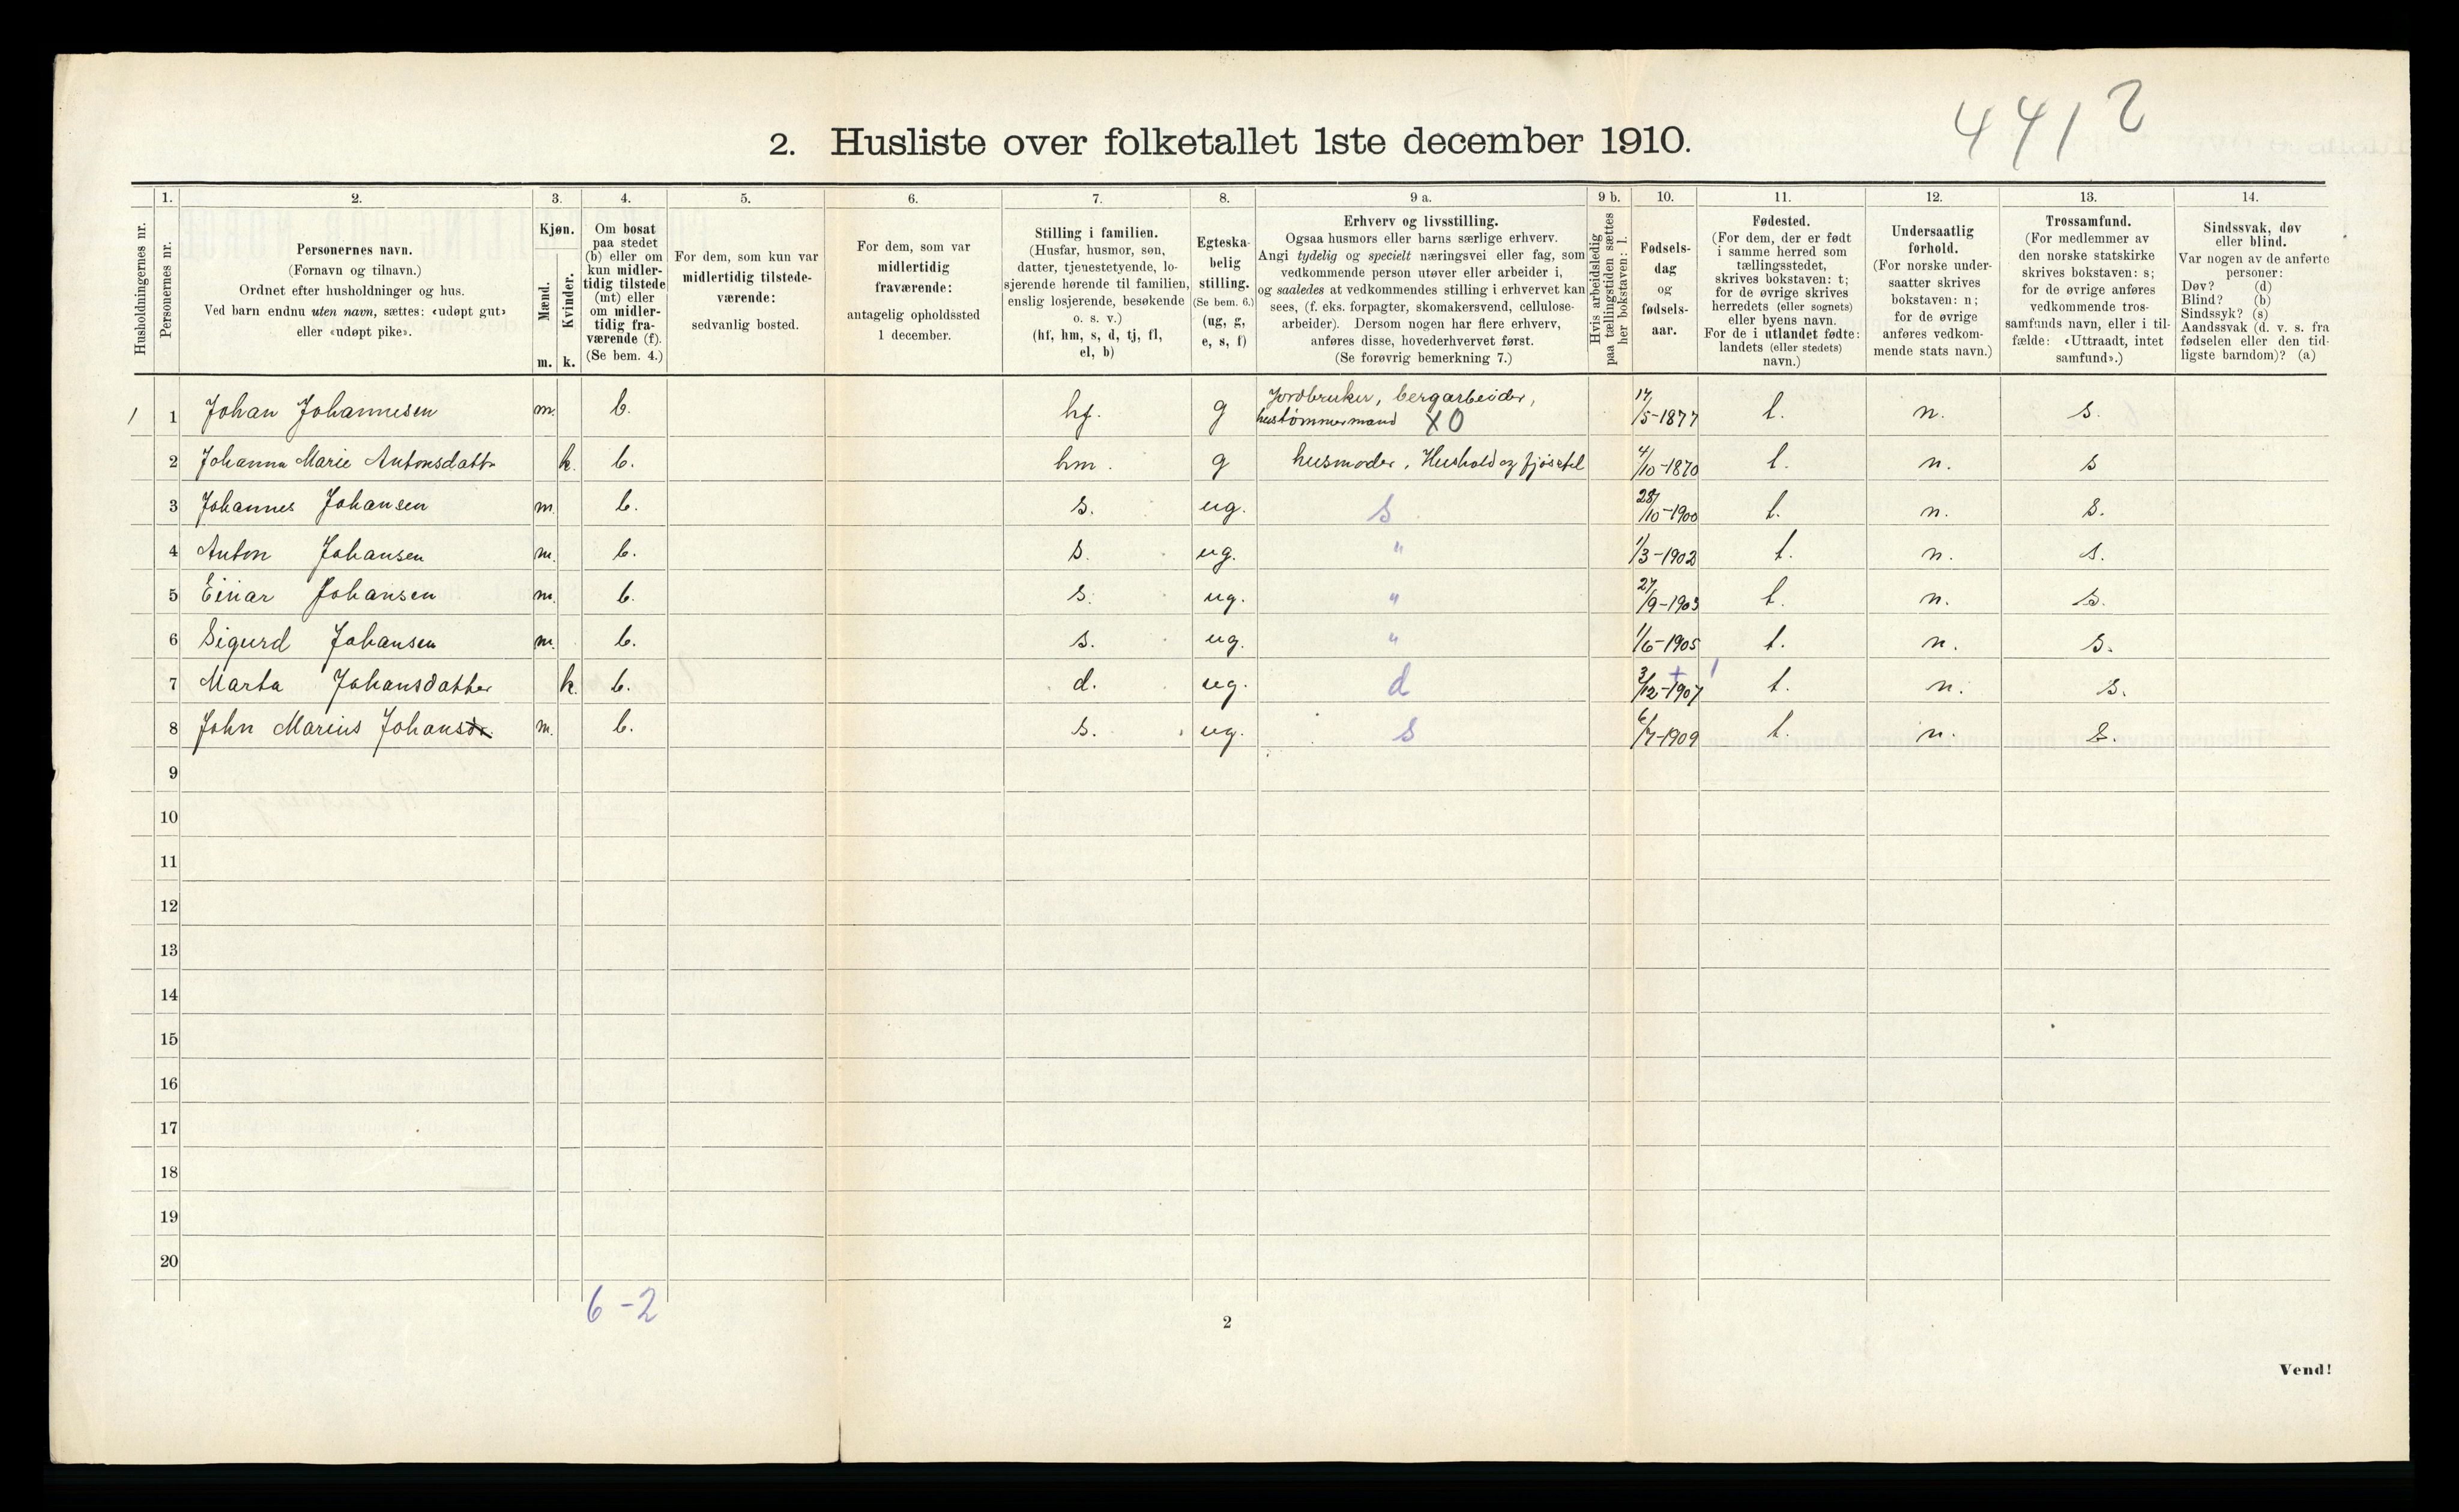 4412
2. Husliste over folketallet 1ste december 1910.
Husholdningernes nr.
1.
Personernes nr.
2.
Personernes navn.
(Fornavn og tilnavn.)
Ordnet efter husholdninger og hus.
Ved barn endnu uten navn, sættes: «udøpt gut»
eller «udøpt pike».
3.
Kjøn.
Mænd.
Kvinder.
m. k.
4.
Om bosat
paa stedet
(b) eller om
kun midler-
tidig tilstede
(mt) eller
om midler-
tidig fra-
værende (f).
(Se bem. 4.)
5.
For dem, som kun var
midlertidig tilstede-
værende:
sedvanlig bosted.
6.
For dem, som var
midlertidig
fraværende:
antagelig opholdssted
1 december.
7.
Stilling i familien.
(Husfar, husmor, søn,
datter, tjenestetyende, lo-
sjerende hørende til familien,
enslig losjerende, besøkende
o. s. v.)
(hf, hm, s, d, tj, fl,
el, b)
8.
Egteska-
belig
stilling.
(Se bem. 6.)
(ug, g,
e, s, f)
9 a.
Erhverv og livsstilling.
Ogsaa husmors eller barns særlige erhverv.
Angi tydelig og specielt næringsvei eller fag, som
vedkommende person utøver eller arbeider i,
og saaledes at vedkommendes stilling i erhvervet kan
sees, (f. eks. forpagter, skomakersvend, cellulose-
arbeider). Dersom nogen har flere erhverv,
anføres disse, hovederhvervet først.
(Se forøvrig bemerkning 7.)
9 b.
Hvis arbeidsledig
paa tællingstiden sættes
her bokstaven: l.
10.
Fødsels-
dag
og
fødsels-
aar.
11.
Fødested.
(For dem, der er født
i samme herred som
tællingsstedet,
skrives bokstaven: t;
for de øvrige skrives
herredets (eller sognets)
eller byens navn.
For de i utlandet fødte:
landets (eller stedets)
navn.)
12.
Undersaatlig
forhold.
(For norske under-
saatter skrives
bokstaven: n;
for de øvrige
anføres vedkom-
mende stats navn.)
13.
Trossamfund.
(For medlemmer av
den norske statskirke
skrives bokstaven: s;
for de øvrige anføres
vedkommende tros-
samfunds navn, eller i til-
fælde: «Uttraadt, intet
samfund».)
14.
Sindssvak, døv
eller blind.
Var nogen av de anførte
personer:
Døv? (d)
Blind? (b)
Sindssyk? (s)
Aandssvak (d. v. s. fra
fødselen eller den tid-
ligste barndom)? (a)
1 1 Johan Johannesen m. b. hf. g Jordbruker, bergarbeider, hustømmermand XO 14/5-1877 t. n. s.
2 Johanna Marie Antonsdattr k. b. hm. g husmoder, Hushold og fjøsstel 4/10-1870 t. n. s
3 Johannes Johansen m. b. s. ug. s 28/10-1900 t. n. s.
4 Anton Johansen m. b. s. ug. " 1/3-1902 t. n. s.
5 Einar Johansen m. b. s. ug. " 27/9-1903 t. n. s.
6 Sigurd Johansen m. b. s. ug. " 1/6-1905 t. n. s.
7 Marta Johansdatter k. b. d. ug. d 3/12-1907 t. n. s.
8 John Marius Johans m. b. s. ug. s 6/7-1909 t. n. s.
9
10
11
12
13
14
15
16
17
18
19
20
6-2
2
Vend!